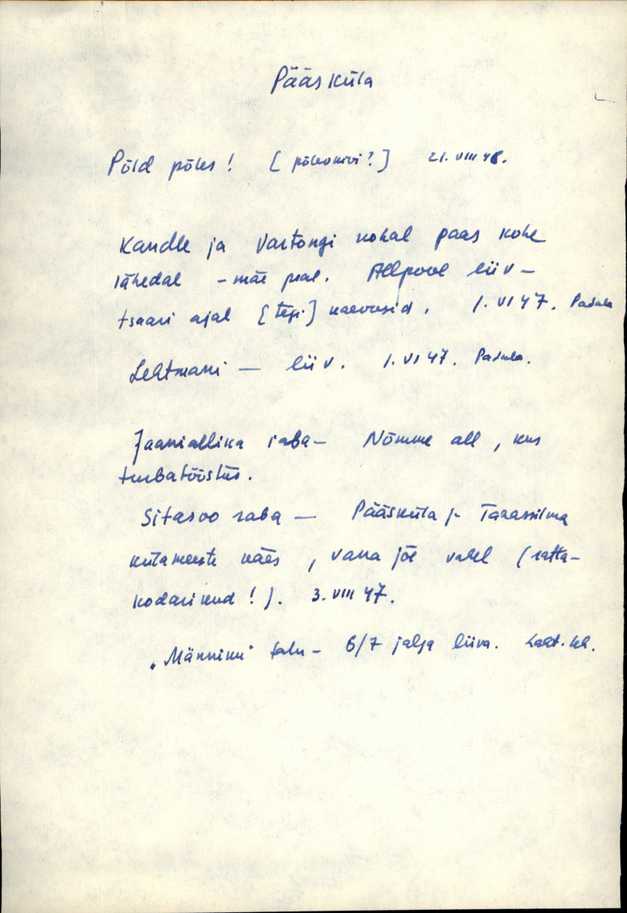 Pääsküla
Põld põles! [põlevkivi?] 21. VIII 48.
Kandle ja Vartongi kohal paas kohe
lähedal - mäe peal. Allpool liiv -
tsaari ajal [teji] kaevasid. 1. VI 47. Padula
Lehtmani — liiv. 1. VI 47. Padula.
Jaaniallika raba - Nõmme all, kus
turbatööstus.
Sitasoo raba — Pääsküla j- Taaassilma
külameeste käes, vana jõe vahel (ratta-
kodarikud!). 3. VIII 47.
"Männiku" talu - 6/7 jalga liiva.